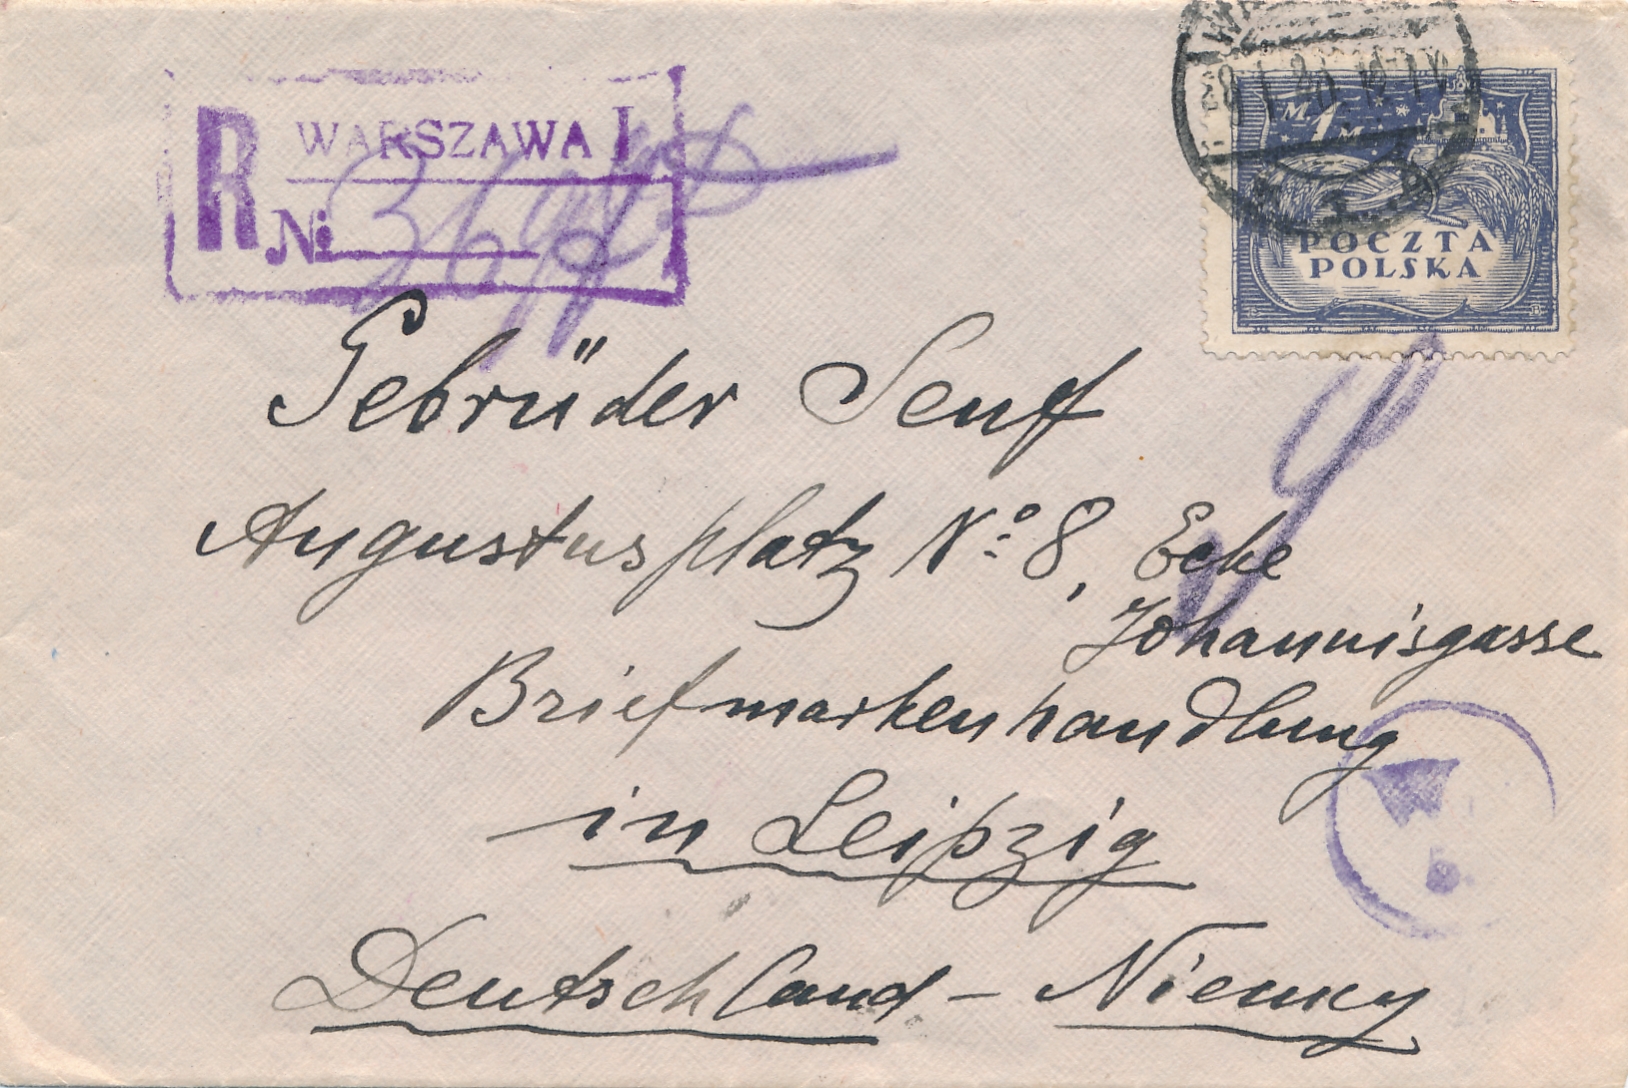 R WARSZAWA I
№
M 1 M
POCZTA
POLSKA
Gebrüder Senf
Augustusplatz No 8, Ecke
Johannisgasse
Briefmarkenhandlung
in Leipzig
Deutschland – Niemcy